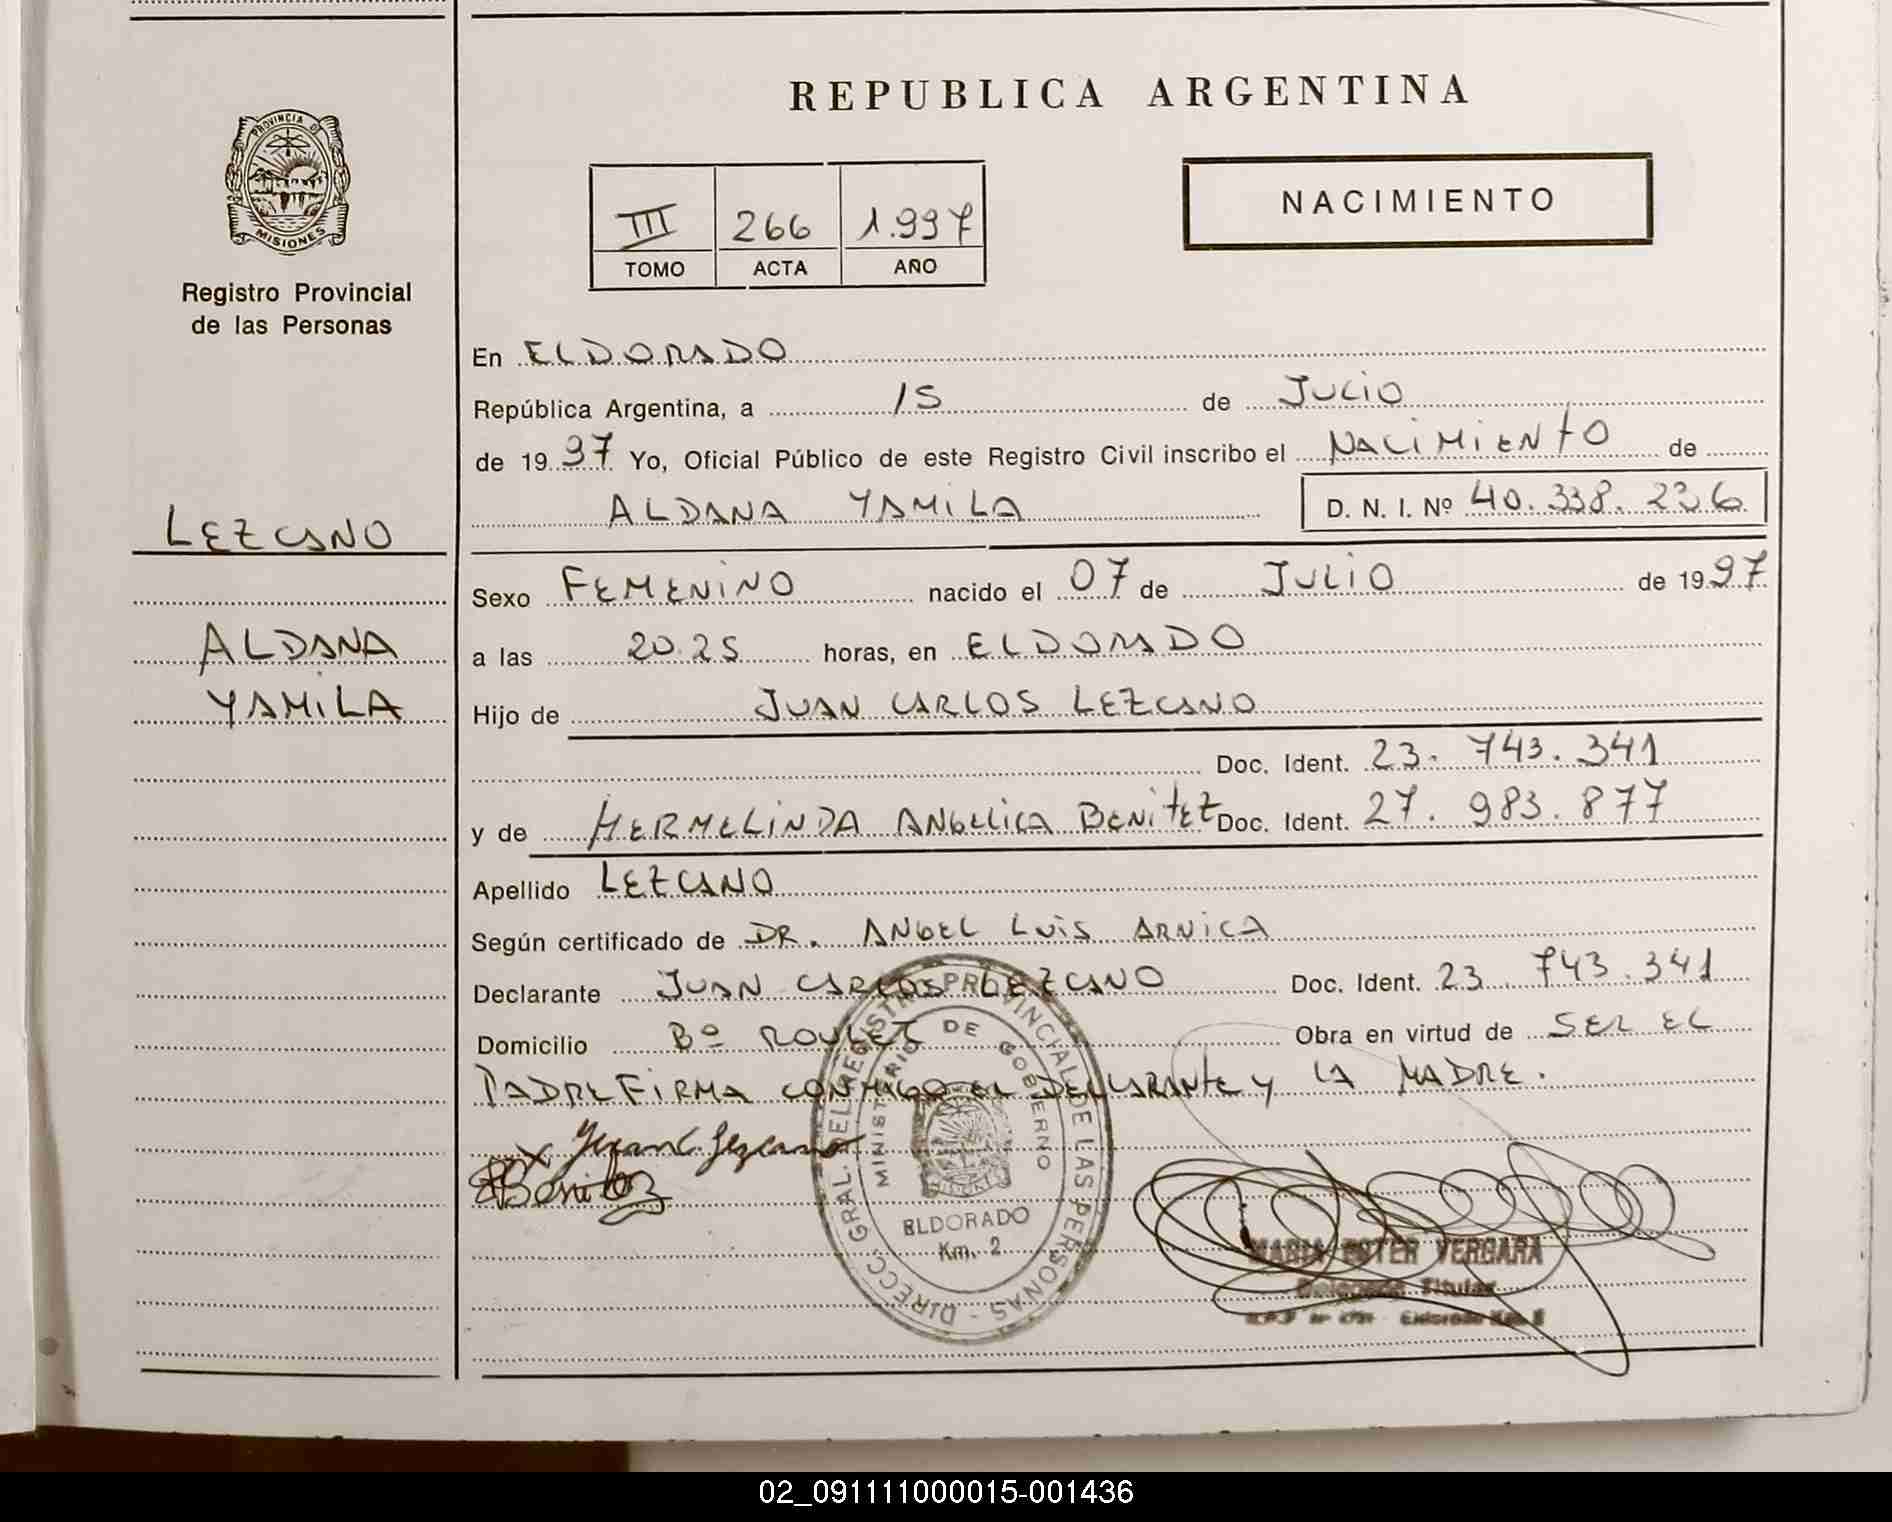 REPUBLICA ARGENTINA
PROVINCIA DE
MISIONES
Registro Provincial
de las Personas
LEZCANO
ALDANA
YAMiLA
III 266 1.997
TOMO ACTA AÑO
NACIMIENTO
En ELDORADO
República Argentina, a 15 de JULiO
de 1997 Yo, Oficial Público de este Registro Civil inscribo el NACiMiENTO de
ALDANA YAMiLA D. N. I. Nº 40.338.236
Sexo FEMENiNO nacido el 07 de JULiO de 1997
a las 20.25 horas, en ELDORADO
Hijo de JUAN CARLOS LEZCANO
Doc. Ident. 23.743.341
y de HERMELiNDA ANGELiCA BENiTEZ Doc. Ident. 27.983.877
Apellido LEZCANO
Según certificado de DR. ANGEL LUiS ARNiCA
Declarante JUAN CARLOS LEZCANO Doc. Ident. 23.743.341
Domicilio Bº ROULET Obra en virtud de SER EL
PADRE FiRMA CONMIGO EL DECLARANTE Y LA MADRE.
x Juan C. Lezcano
Benitez
DIRECC. GRAL. DEL REGISTRO PROVINCIAL DE LAS PERSONAS -
MINISTERIO DE GOBIERNO
ELDORADO
Km. 2
MARIA ESTER VERGARA
Delegada Titular
Eldorado Km. 2
02_091111000015-001436